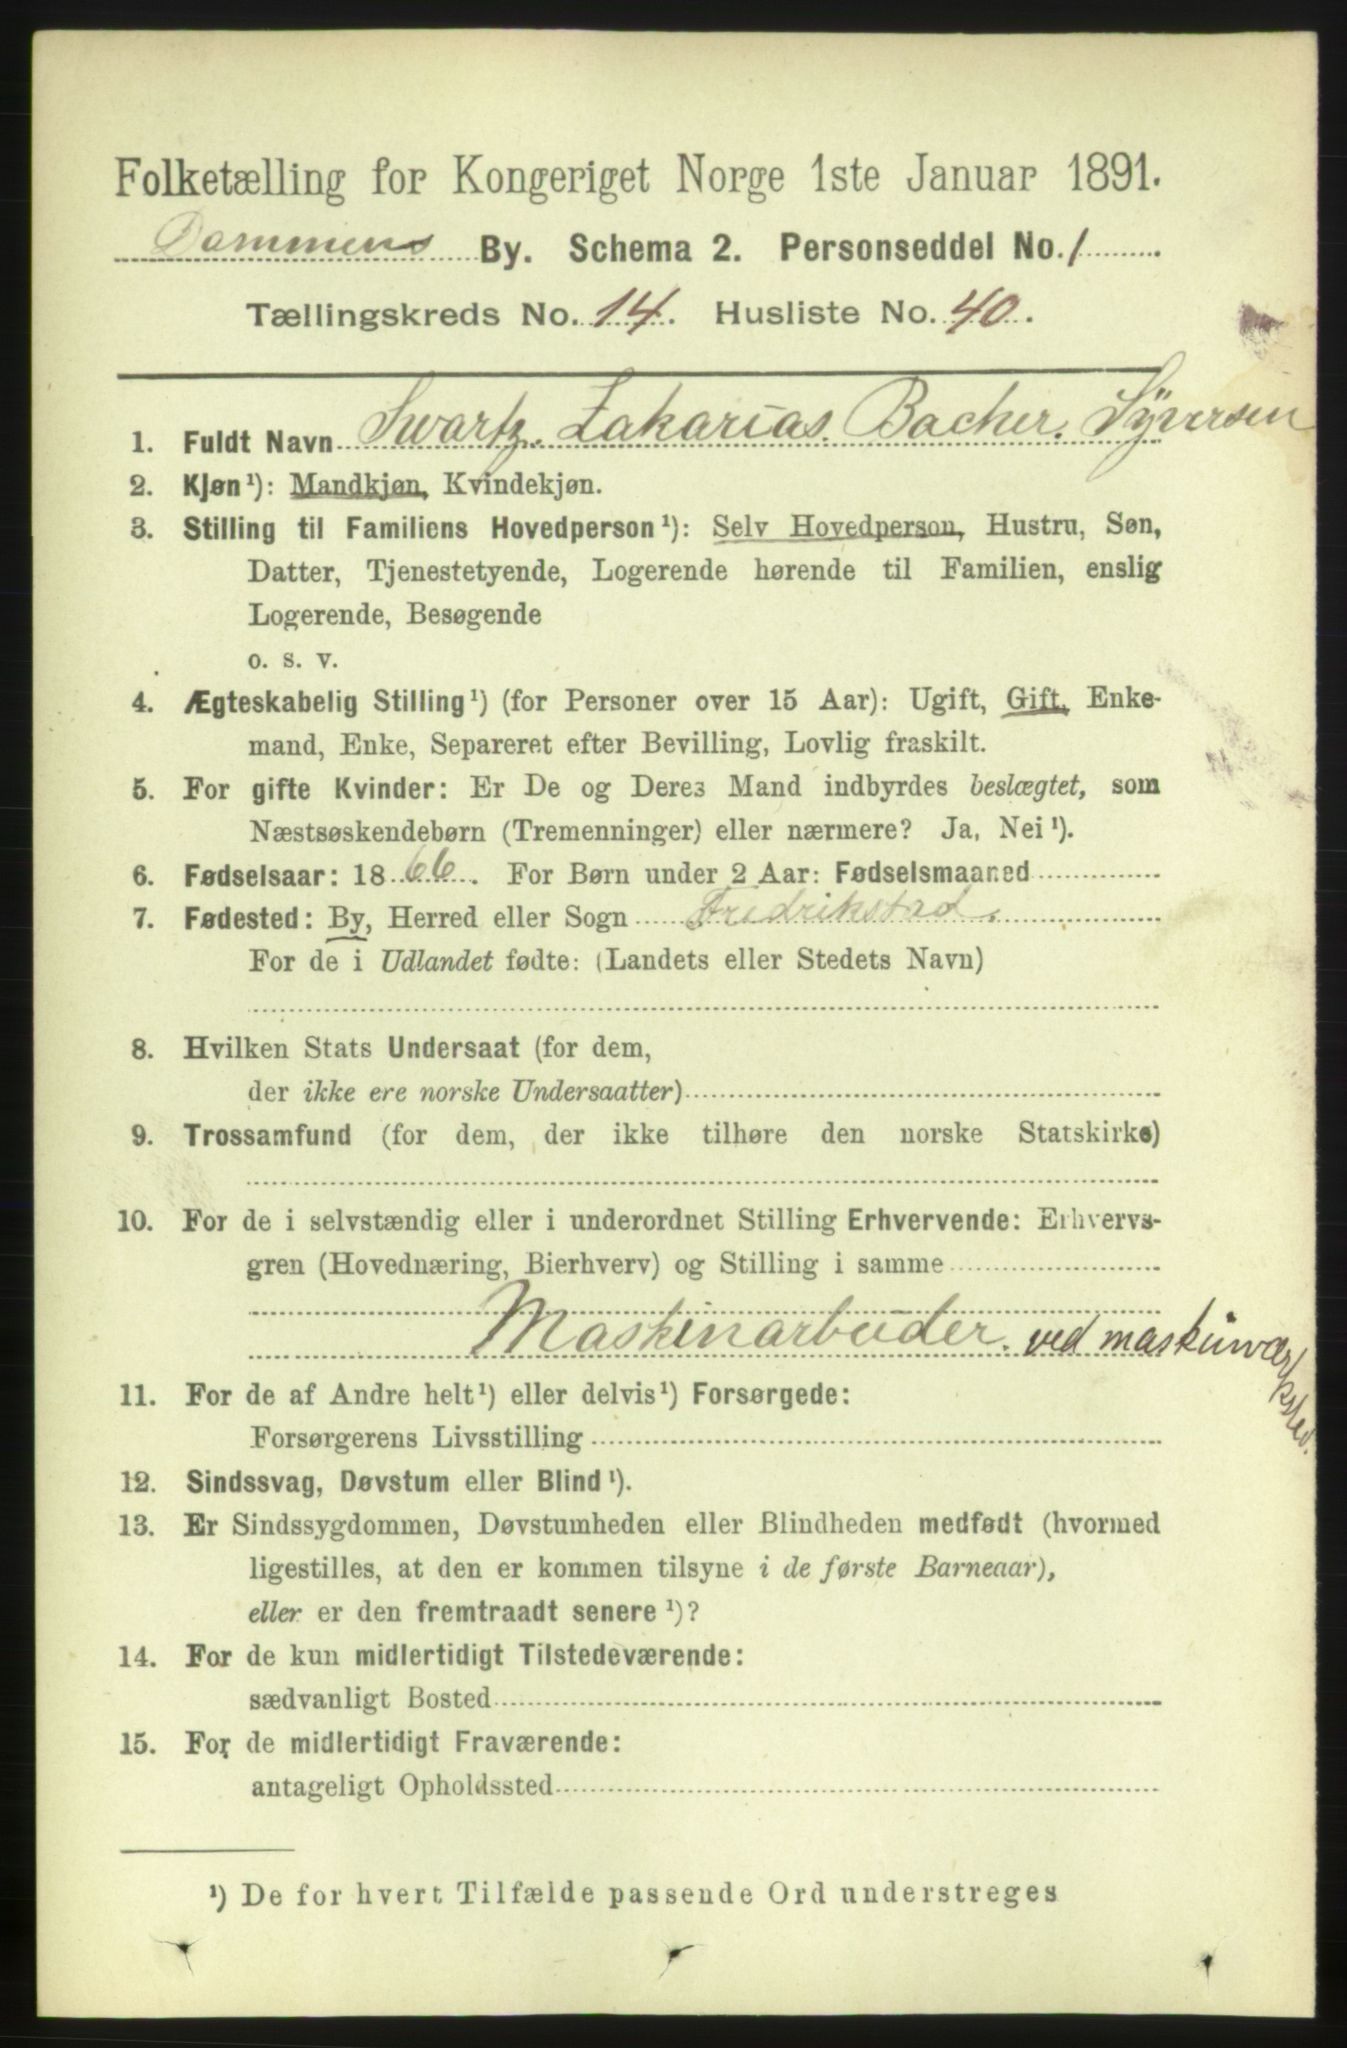 Folketælling for Kongeriget Norge 1ste Januar 1891.
Dammens By. Schema 2. Personseddel No. 1
Tællingskreds No. 14. Husliste No. 40.
1. Fuldt Navn Swartz. Zakarias. Bacher. Syversen
2. Kjøn¹): Mandkjøn, Kvindekjøn.
3. Stilling til Familiens Hovedperson¹): Selv Hovedperson, Hustru, Søn,
Datter, Tjenestetyende, Logerende hørende til Familien, enslig
Logerende, Besøgende
o. s. v.
4. Ægteskabelig Stilling¹) (for Personer over 15 Aar): Ugift, Gift, Enke-
mand, Enke, Separeret efter Bevilling, Lovlig fraskilt.
5. For gifte Kvinder: Er De og Deres Mand indbyrdes beslægtet, som
Næstsøskendebørn (Tremenninger) eller nærmere? Ja, Nei¹).
6. Fødselsaar: 1866. For Børn under 2 Aar: Fødselsmaaned
7. Fødested: By, Herred eller Sogn Fredrikstad.
For de i Udlandet fødte: (Landets eller Stedets Navn)
8. Hvilken Stats Undersaat (for dem,
der ikke ere norske Undersaatter)
9. Trossamfund (for dem, der ikke tilhøre den norske Statskirke)
10. For de i selvstændig eller i underordnet Stilling Erhvervende: Erhvervs-
gren (Hovednæring, Bierhverv) og Stilling i samme
Maskinarbeider. ved maskinværksted.
11. For de af Andre helt¹) eller delvis¹) Forsørgede:
Forsørgerens Livsstilling
12. Sindssvag, Døvstum eller Blind¹).
13. Er Sindssygdommen, Døvstumheden eller Blindheden medfødt (hvormed
ligestilles, at den er kommen tilsyne i de første Barneaar),
eller er den fremtraadt senere¹)?
14. For de kun midlertidigt Tilstedeværende:
sædvanligt Bosted
15. For de midlertidigt Fraværende:
antageligt Opholdssted
¹) De for hvert Tilfælde passende Ord understreges